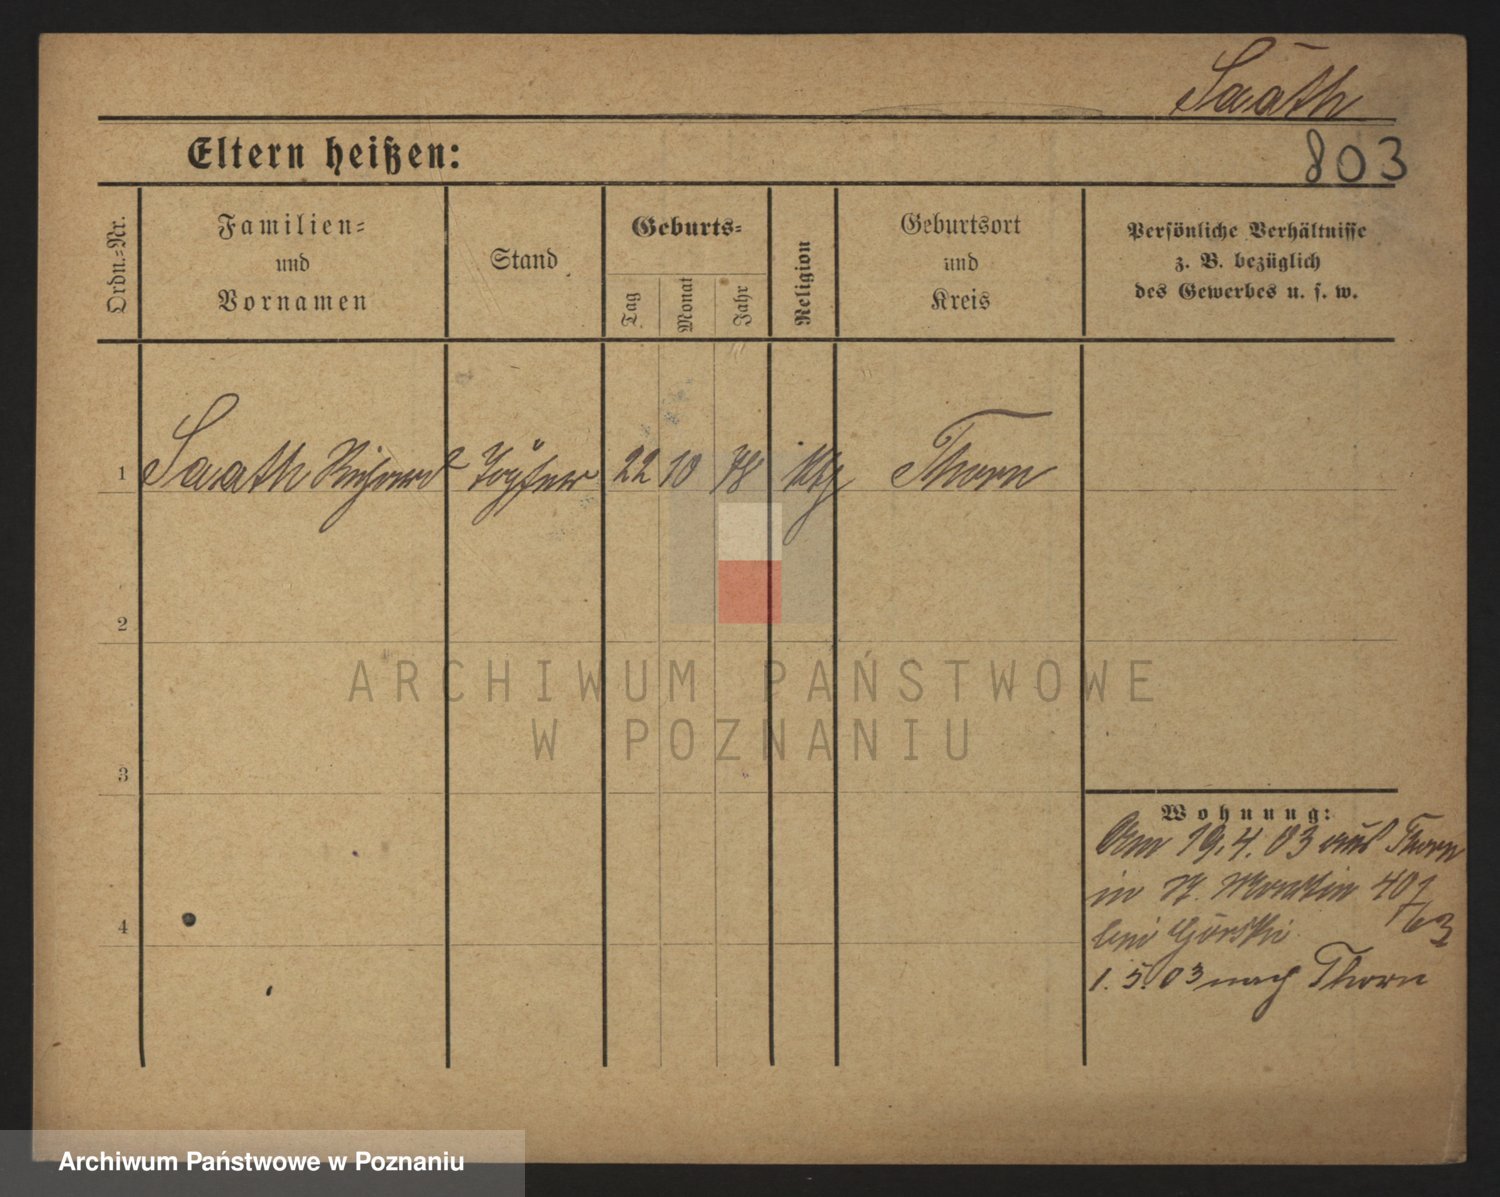 Saath
803
Eltern heißen:
Ordn.-Nr.
Familien-
und
Vornamen
Stand
Geburts-
Tag
Monat
Jahr
Religion
Geburtsort
und
Kreis
Persönliche Verhältnisse
z. B. bezüglich
des Gewerbes u. s. w.
1 Saath Richard Töpfer 22 10 78 Thorn
2
3
4
Wohnung:
Am 19.4.03 aus Thorn
in
bei Górski
1.5.03 nach Thorn
ARCHIWUM PAŃSTWOWE
W POZNANIU
Archiwum Państwowe w Poznaniu